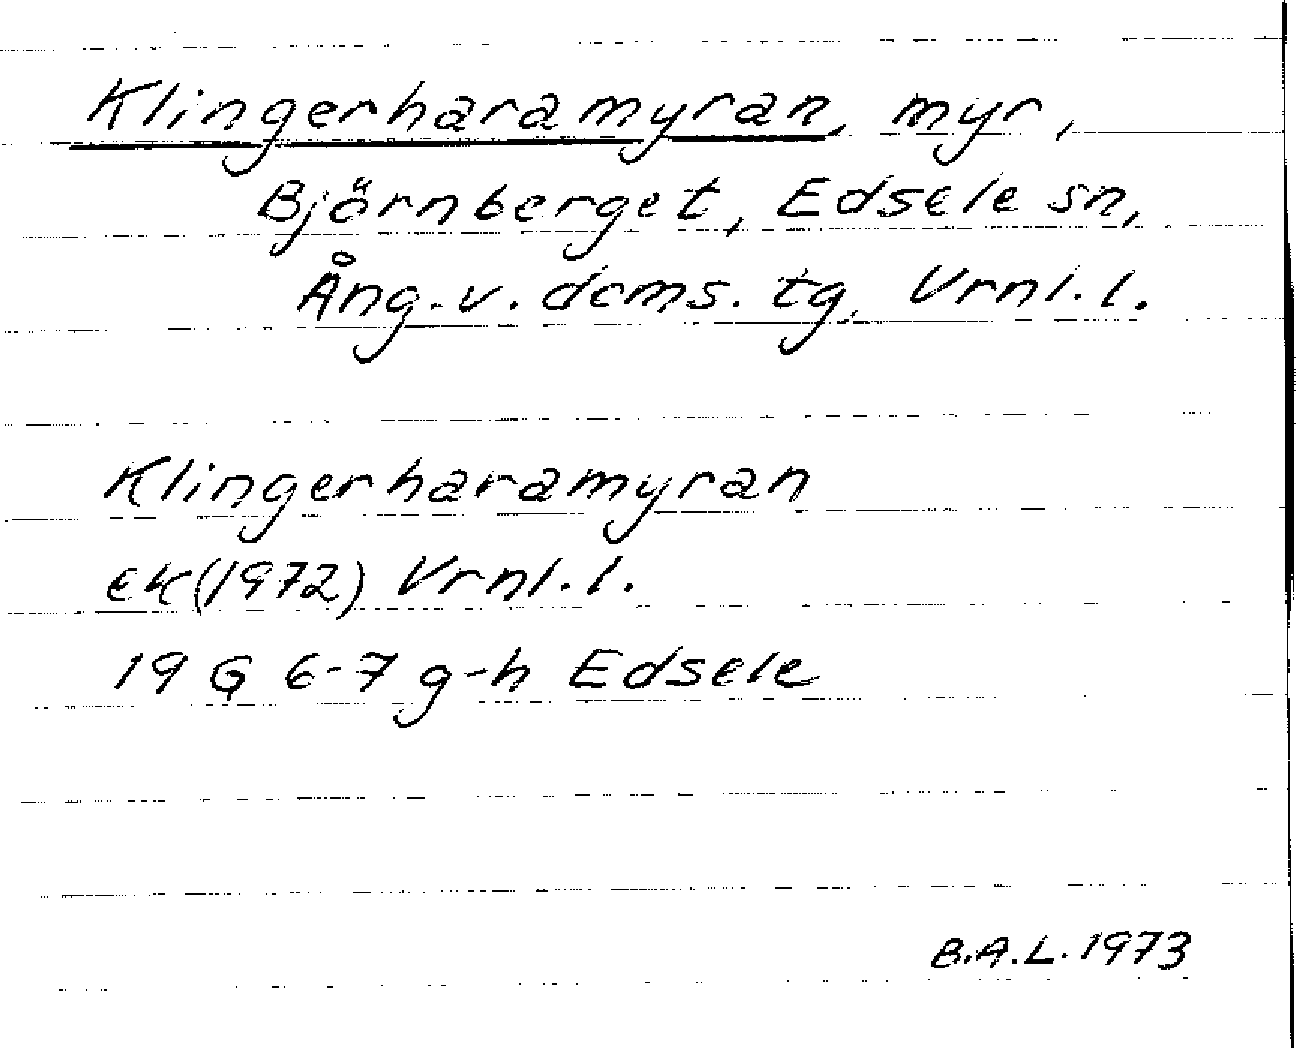 Klingerharamyran, myr,
Björnberget, Edsele sn,
Ång. v. doms. tg, Vrnl. l.
Klingerharamyran
EK (1972) Vrnl. l.
19 G 6-7 g-h Edsele
B.A.L. 1973